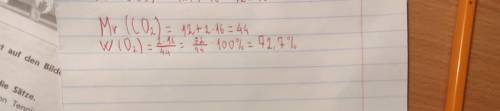 Mr (CO₂) = 12 + 2·16 = 44
W (O₂) = 2·16/44 = 32/44 · 100% = 72,7%
t auf den Bilde
die Sätze.